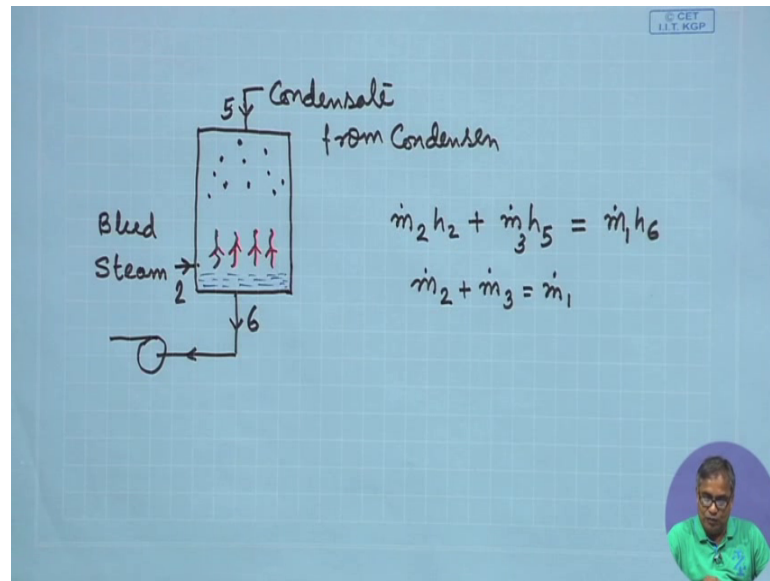 © CET
I.I.T. KGP
5 Condensate
from Condenser
Bleed
Steam
2
6
ṁ₂h₂ + ṁ₃h₅ = ṁ₁h₆
ṁ₂ + ṁ₃ = ṁ₁